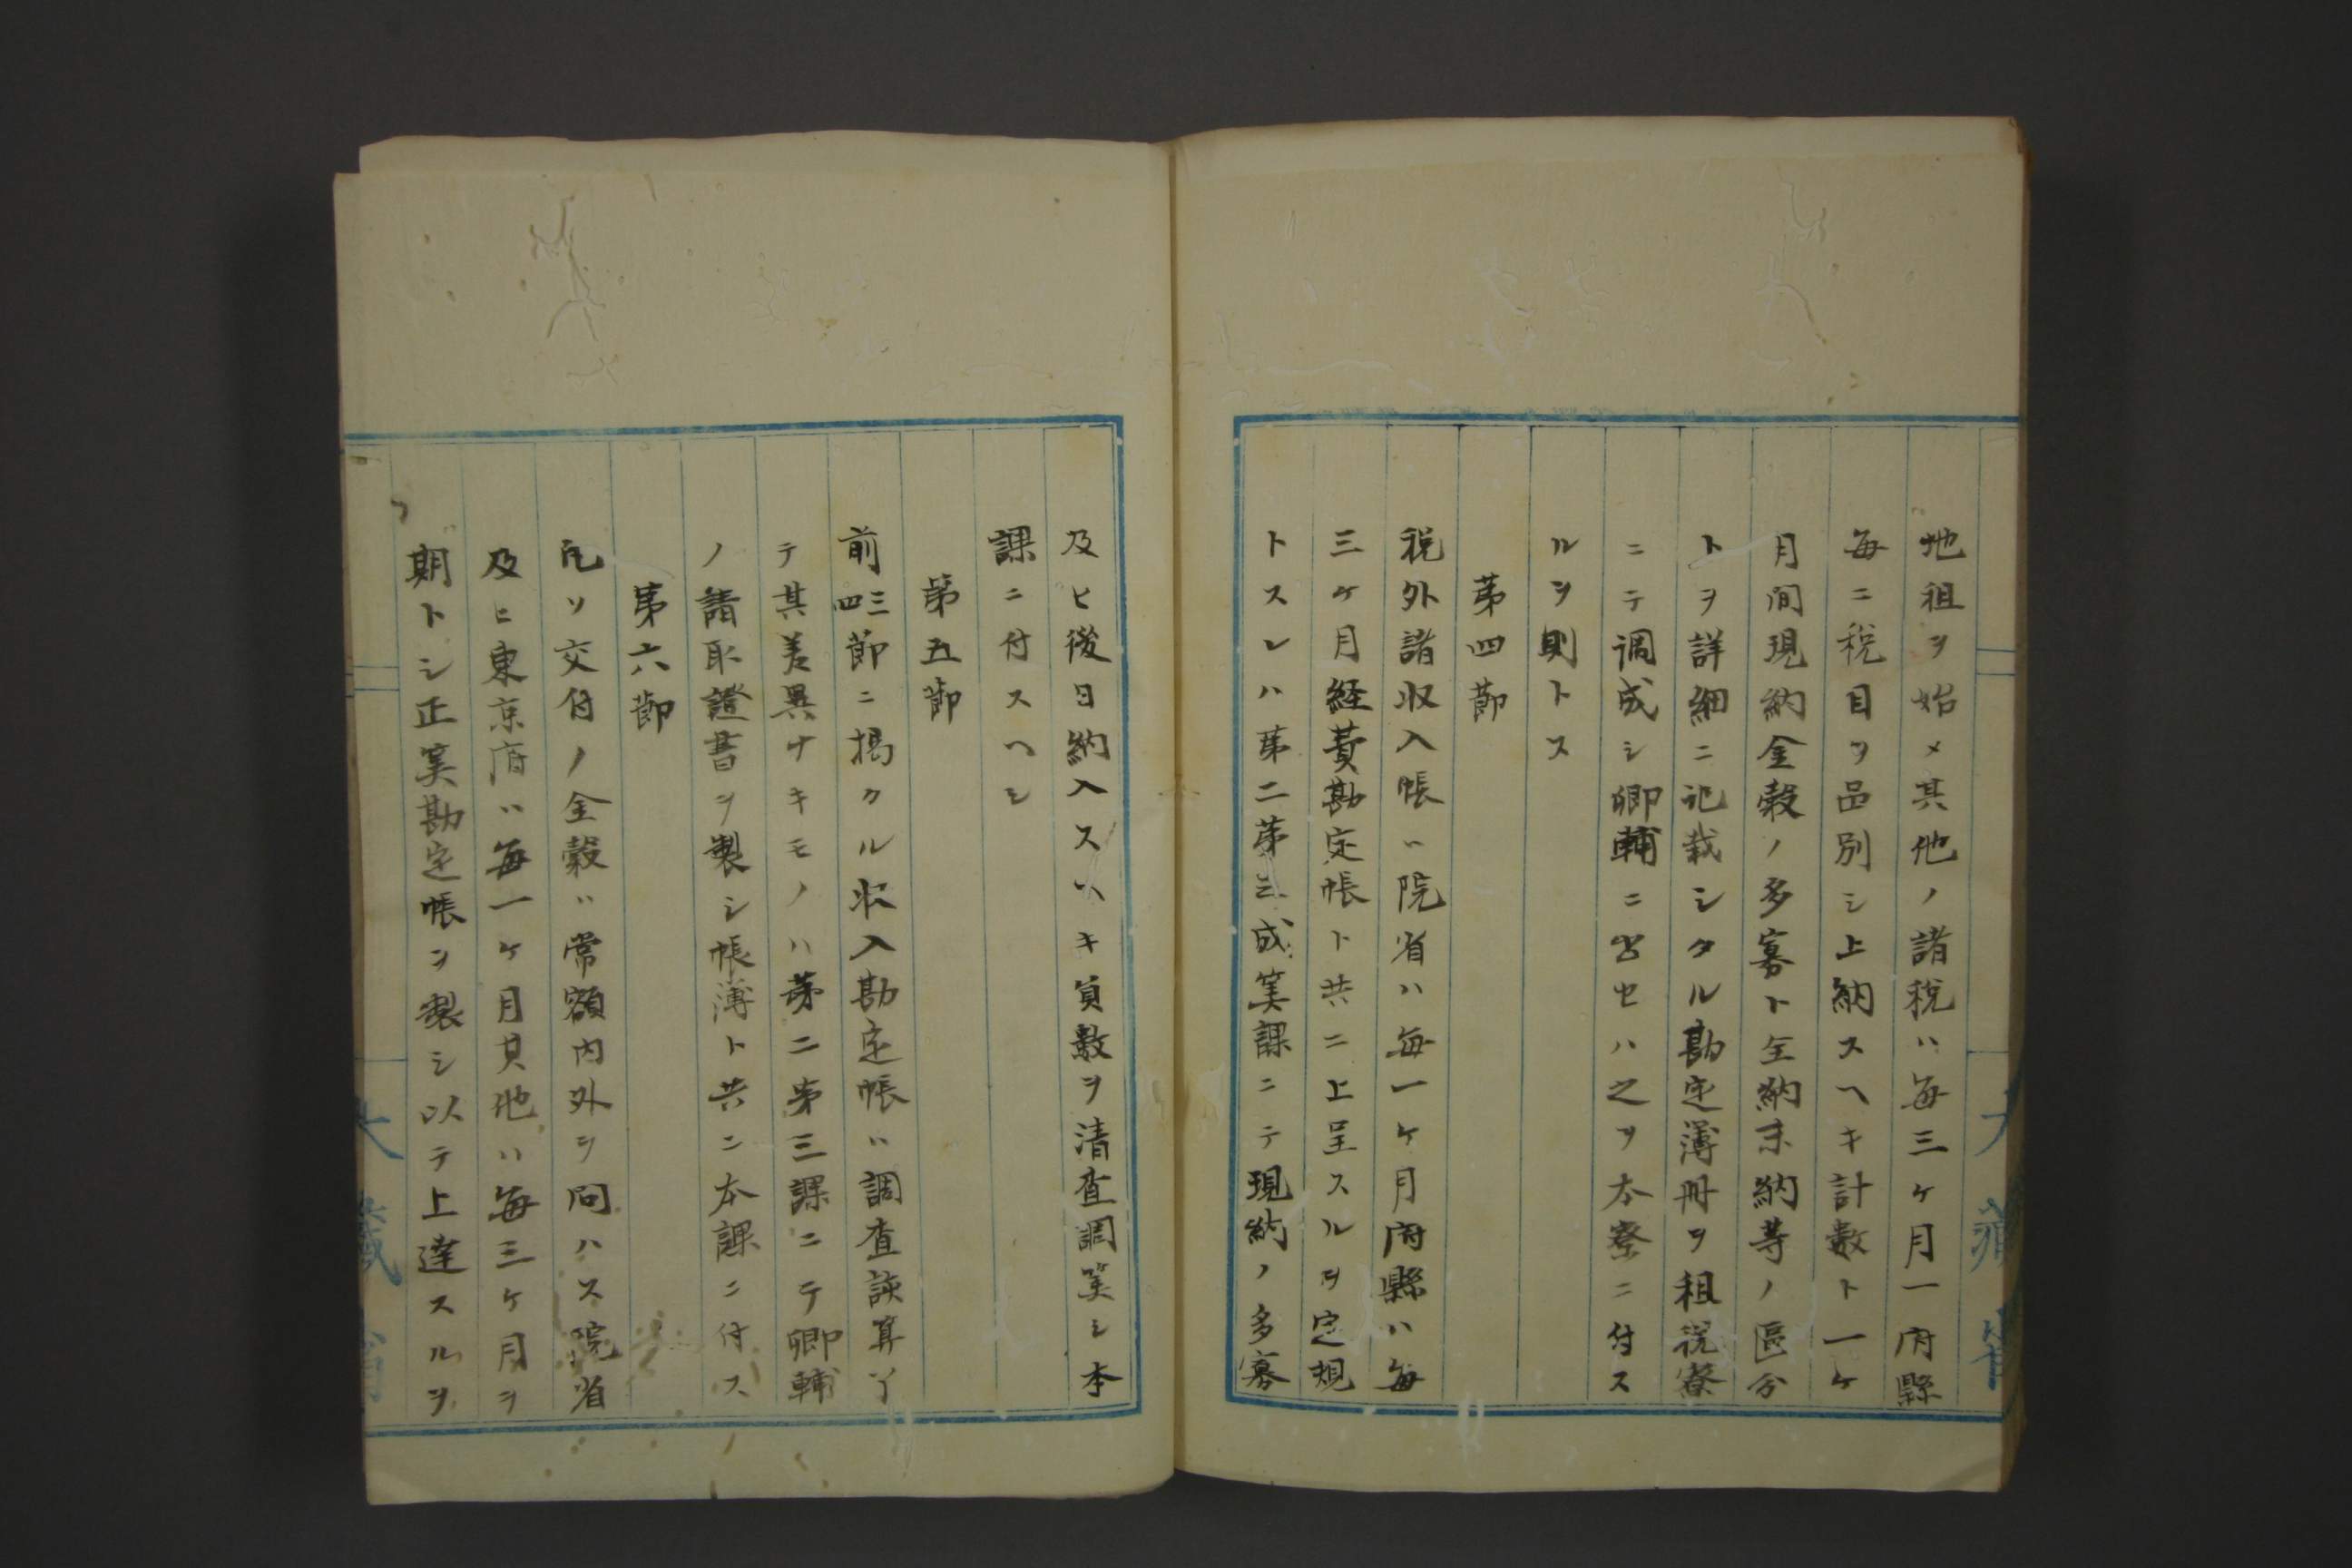 地租ヲ始メ其他ノ諸税ハ毎三ケ月一府縣
毎ニ税目ヲ品別シ上納スヘキ計数ト一ケ
月間現納金穀ノ多寡ト全納未納等ノ區分
トヲ詳細ニ記載シタル勘定簿冊ヲ租税寮
ニテ調成シ卿輔ニ出セハ之ヲ本寮ニ付ス
ルヲ則トス
第四節
税外諸収入帳ハ院省ハ毎一ケ月府縣ハ毎
三ケ月経費勘定帳ト共ニ上呈スルヲ定規
トスレハ第二第三成筭課ニテ現納ノ多寡
及ヒ後日納入スヘキ員數ヲ清査調筭シ本
課ニ付スヘシ
第五節
前三四節ニ掲クル収入勘定帳ハ調査該算了
テ其差異ナキモノハ第二第三課ニテ卿輔
ノ請取證書ヲ製シ帳簿ト共ニ本課ニ付ス
第六節
凡ソ交付ノ金穀ハ常額内外ヲ問ハス院省
及ヒ東京府ハ毎一ケ月其他ハ毎三ケ月ヲ
期トシ正筭勘定帳ヲ製シ以テ上達スルヲ
大藏省